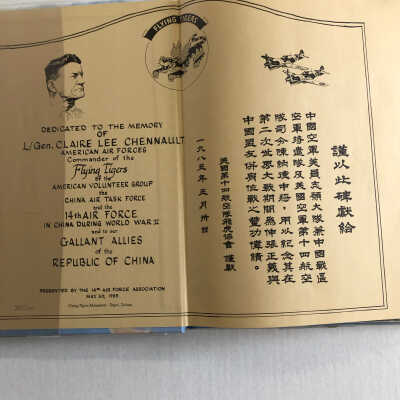 FLYING TIGERS
DEDICATED TO THE MEMORY
OF
L/Gen. CLAIRE LEE CHENNAULT
AMERICAN AIR FORCES
Commander of the
Flying Tigers
of the
AMERICAN VOLUNTEER GROUP
the
CHINA AIR TASK FORCE
and the
14th AIR FORCE
IN CHINA DURING WORLD WAR II
and to our
GALLANT ALLIES
of the
REPUBLIC OF CHINA
PRESENTED BY THE 14th AIR FORCE ASSOCIATION
MAY 30, 1985
Flying Tigers Monument - Taipei, Taiwan
謹以此碑獻給
中國空軍美員志願大隊兼中國戰區
空軍特遣隊及美國空軍第十四航空
隊司令陳納德中將，用以紀念其在
第二次世界大戰期間為伸張正義與
中國盟友併肩作戰之豐功偉績。
美國第十四航空隊飛虎協會 謹獻
一九八五年五月卅日